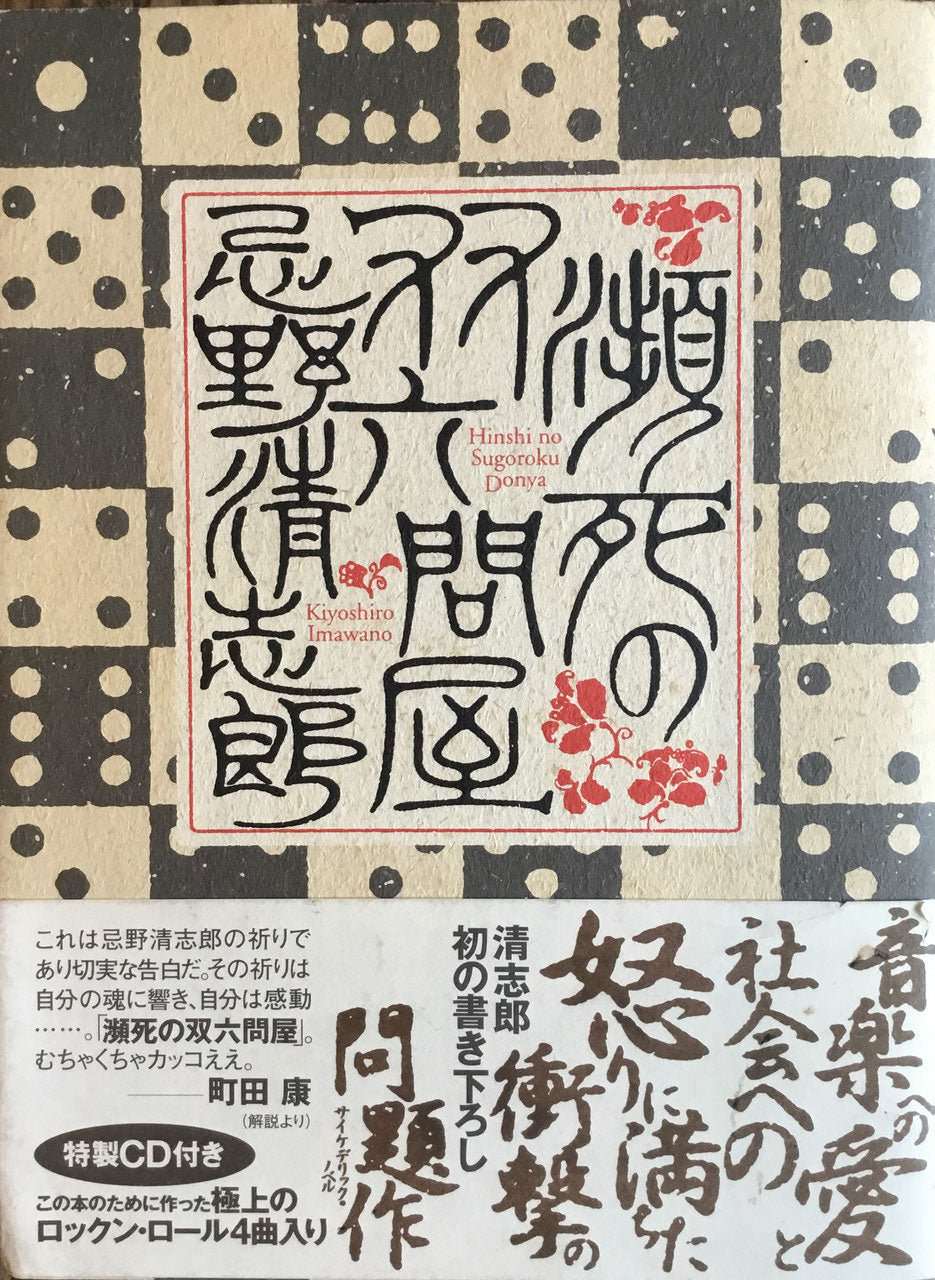 瀕死の
双六問屋
忌野清志郎
Hinshi no
Sugoroku
Donya
Kiyoshiro
Imawano
音楽への愛と
社会への
怒りに満ちた
衝撃の
問題作
サイケデリック・
ノベル
清志郎
初の書き下ろし
これは忌野清志郎の祈りで
あり切実な告白だ。その祈りは
自分の魂に響き、自分は感動
……。「瀕死の双六問屋」。
むちゃくちゃカッコええ。
――町田 康
(解説より)
特製CD付き
この本のために作った極上の
ロックン・ロール4曲入り